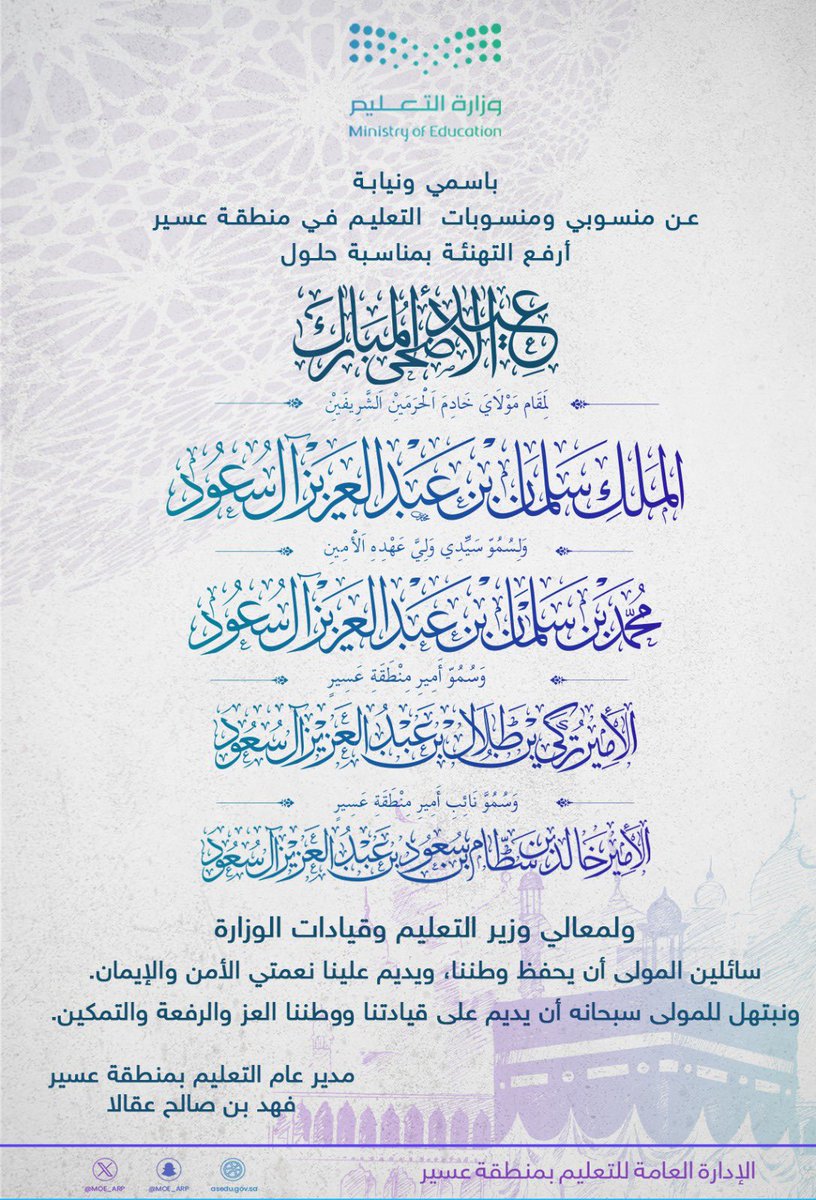 وزارة التعليم
Ministry of Education
باسمي ونيابة
عن منسوبي ومنسوبات التعليم في منطقة عسير
أرفع التهنئة بمناسبة حلول
عيد الأضحى المبارك
لِمَقَام مَوْلَايَ خَادِمَ اَلْحَرَمَيْنِ اَلشَّرِيفَيْنِ
الملك سلمان بن عبد العزيز آل سعود
وَلسُمُوّ سَيِّدِي وَلِيَّ عَهْدِهِ اَلْأَمِينِ
محمد بن سلمان بن عبد العزيز آل سعود
وَسُمُوّ أَمِيرِ مِنْطَقَةِ عَسِيرٍ
الأمير تركي بن طلال بن عبد العزيز آل سعود
وَسُمُوَّ نَائِبِ أَمِيرِ مِنْطَقَةِ عَسِيرٍ
الأمير خالد بن سطام بن سعود بن عبد العزيز آل سعود
ولمعالي وزير التعليم وقيادات الوزارة
سائلين المولى أن يحفظ وطننا، ويديم علينا نعمتي الأمن والإيمان.
ونبتهل للمولى سبحانه أن يديم على قيادتنا ووطننا العز والرفعة والتمكين.
مدير عام التعليم بمنطقة عسير
فهد بن صالح عقالا
الإدارة العامة للتعليم بمنطقة عسير
@MOE_ARP @MOE_ARP asedu.gov.sa